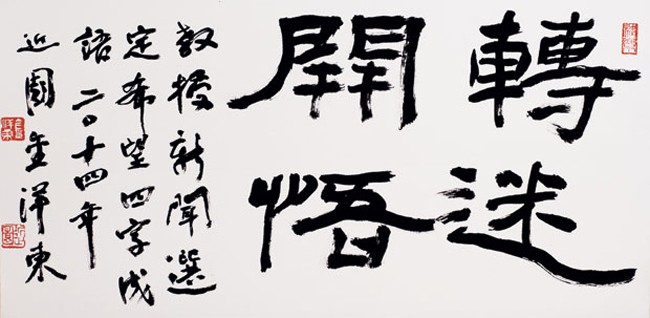 轉迷
開悟
教授新聞選
定希望四字成
語二〇十四年
近園金洋東